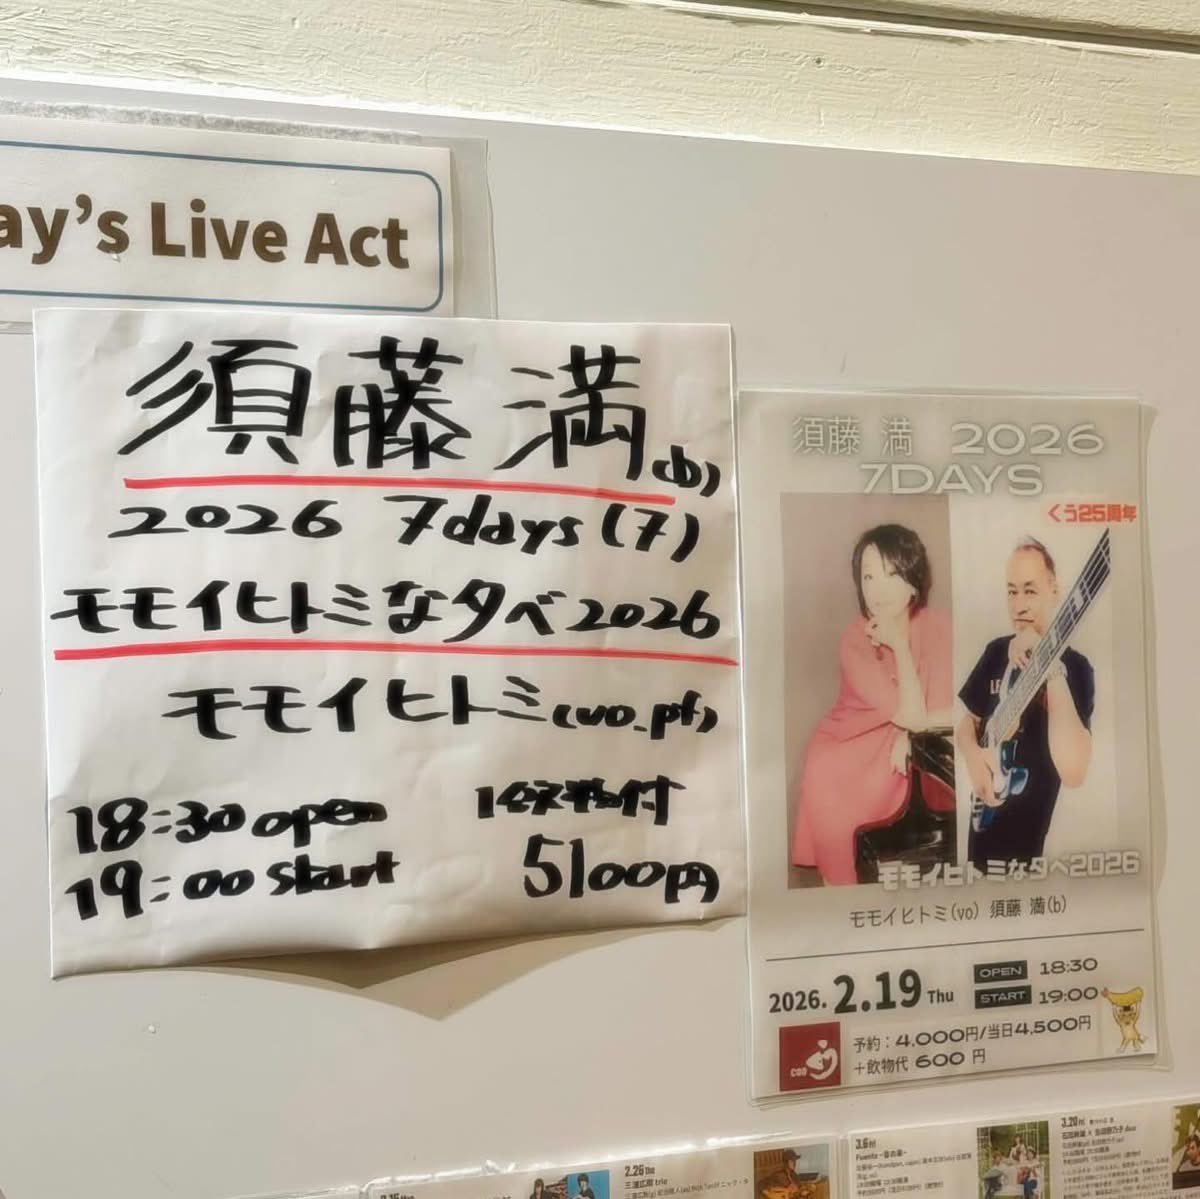 ay's Live Act
須藤 満(b)
2026 7days(7)
モモイヒトミな夕べ2026
モモイヒトミ(vo_pf)
18:30 open
19:00 start
付
5100円
須藤 満 2026
7DAYS
くう25周年
モモイヒトミな夕べ2026
モモイヒトミ(vo) 須藤 満(b)
2026. 2.19 Thu
OPEN 18:30
START 19:00
予約：4,000円/当日4,500円
+飲物代 600 円
COO
2.26 thu
三浦広樹 trio
3.6 fri
3.20 fri